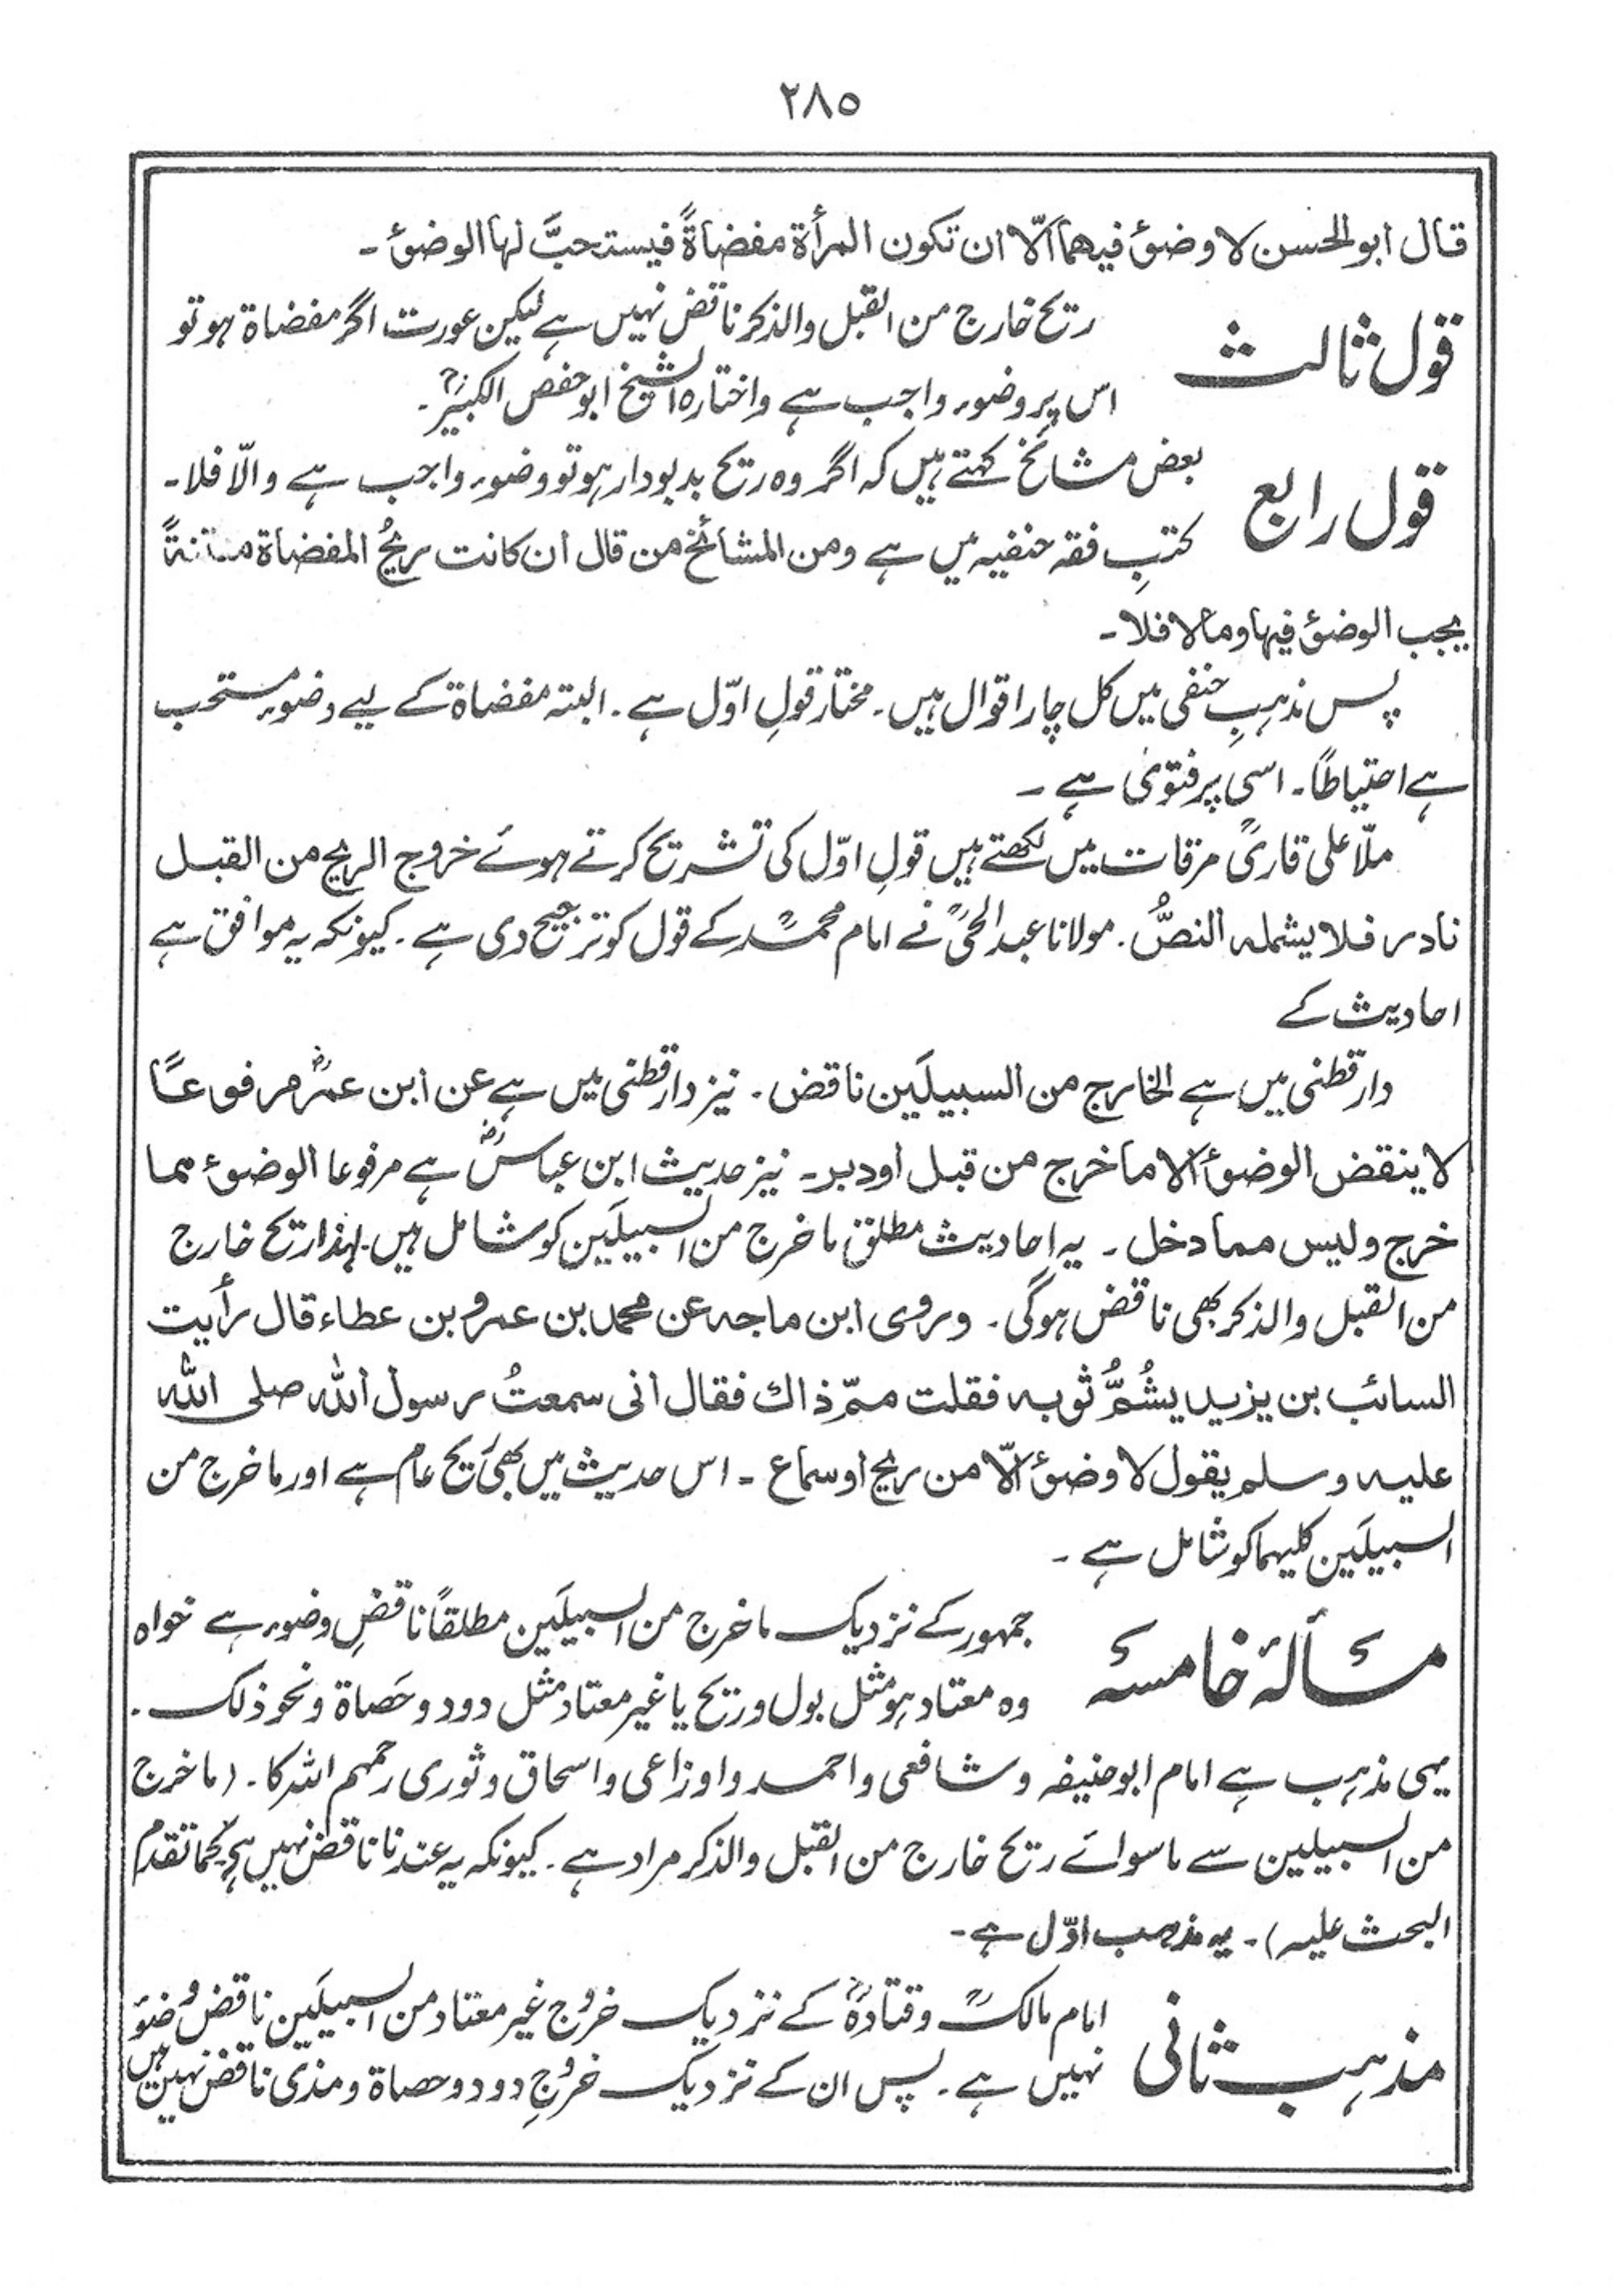 ۲۸۵
قال ابو الحسن لا وضوٴ فیھما الّا ان تکون المرأة مفضاةً فیستحبَّ لھا الوضوٴ ۔
قول ثالث
ریح خارج من القبل والذکر ناقض نہیں ہے لیکن عورت اگر مفضاة ہو تو
اس پر وضوء واجب ہے واختارہ الشیخ ابو حفص الکبیرؒ ۔
قول رابع
بعض مشائخ کہتے ہیں کہ اگر وہ ریح بدبودار ہو تو وضوء واجب ہے والّا فلا ۔
کتبِ فقہ حنفیہ میں ہے ومن المشائخ من قال ان کانت ریحُ المفضاة منتنةً
یجب الوضوٴ فیھا وما لا فلا ۔
پس مذہبِ حنفی میں کل چار اقوال ہیں ۔ مختار قولِ اوّل ہے ۔ البتہ مفضاة کے لیے وضوء مستحب
ہے احتیاطًا ۔ اسی پر فتویٰ ہے ۔
ملّا علی قاریؒ مرقات میں لکھتے ہیں قولِ اوّل کی تشریح کرتے ہوئے خروج الریح من القبل
نادر فلا یشملہ النصُّ ۔ مولانا عبد الحیؒ نے امام محمدؒ کے قول کو ترجیح دی ہے ۔ کیونکہ یہ موافق ہے
احادیث کے
دارقطنی میں ہے الخارج من السبیلَین ناقض ۔ نیز دارقطنی میں ہے عن ابن عمرؓ مرفوعًا
لا ینقض الوضوٴ الا ما خرج من قبل او دبر ۔ نیز حدیث ابن عباسؓ ہے مرفوعا الوضوٴ مما
خرج ولیس مما دخل ۔ یہ احادیث مطلق ما خرج من السبیلَین کو شامل ہیں ۔ لہٰذا ریح خارج
من القبل والذکر بھی ناقض ہوگی ۔ وروی ابن ماجہ عن محمد بن عمرو بن عطاء قال رأیت
السائب بن یزید یشُمُّ ثوبہ فقلت ممّ ذاك فقال انی سمعتُ رسول اللّٰہ صلی اللّٰہ
علیہ وسلم یقول لا وضوٴ الّا من ریح او سماع ۔ اس حدیث میں بھی ریح عام ہے اور ما خرج من
السبیلَین کلیہما کو شامل ہے ۔
مسألۂ خامسہ
جمہور کے نزدیک ما خرج من السبیلَین مطلقًا ناقضِ وضوء ہے خواہ
وہ معتاد ہو مثل بول وریح یا غیر معتاد مثل دود وحَصاة ونحو ذلک ۔
یہی مذہب ہے امام ابو حنیفہ وشافعی واحمد واوزاعی واسحاق وثوری رحمہم اللہ کا ۔ (ما خرج
من السبیلین سے ماسوائے ریح خارج من القبل والذکر مراد ہے ۔ کیونکہ یہ عندنا ناقض نہیں ہے کما تقدم
البحث علیہ) ۔ یہ مذہب اوّل ہے ۔
مذہب ثانی
امام مالکؒ وقتادہؒ کے نزدیک خروجِ غیر معتاد من السبیلَین ناقض وضوٴ
نہیں ہے ۔ پس ان کے نزدیک خروجِ دود وحصاة ومذی ناقض نہیں ہیں